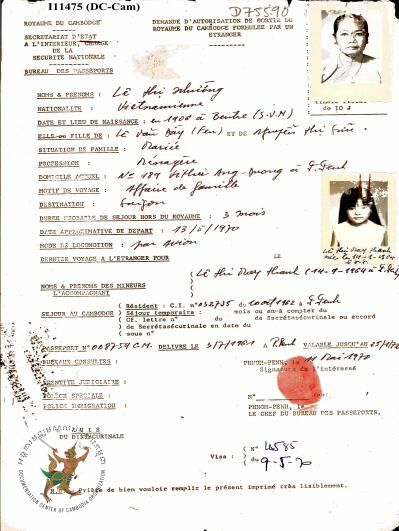 I11475 (DC-Cam)
D75590
ROYAUME DU CAMBODGE
SECRETARIAT D'ETAT
A L'INTERIEUR, CHARGE
DE LA
SECURITE NATIONALE
BUREAU DES PASSEPORTS
DEMANDE D'AUTORISATION DE SORTIE DU
ROYAUME DU CAMBODGE FORMULEE PAR UN
ETRANGER
NOMS & PRENOMS : Lê thi
NATIONALITE : Vietnamienne
DATE ET LIEU DE NAISSANCE : en 1900 à Bentre (S.V.N)
ELLE OU FILLE DE : Lê Van Bây (Feu) ET DE Nguyên thi
SITUATION DE FAMILLE : Mariée
PROFESSION : Ménagère
DOMICILE ACTUEL : No 189 Vithei Ang-Duong à P.Penh
MOTIF DE VOYAGE : Affaire de famille
DESTINATION : Saigon
DUREE PROBABLE DE SEJOUR HORS DU ROYAUME : 3 mois
DATE APPROXIMATIVE DE DEPART : 13/5/1970
MODE DE LOCOMOTION : par avion
DERNIER VOYAGE A L'ETRANGER POUR LE
NOMS & PRENOMS DES MINEURS
L'ACCOMPAGNANT
( Lê thi Thanh (14-9-1964 à
SEJOUR AU CAMBODGE
( Résident : C.I. n° du 1962 à P.Penh
( Séjour temporaire : mois ou an à compter du
( Cf. lettre n° du de Secrétaire ou accord
de Secrétaire en date du
( sous n°
PASSEPORT N° 008754 C.M. DELIVRE LE à P.Penh VALABLE JUSQU'AU
BUREAUX CONSULTES :
IDENTITE JUDICIAIRE :
POLICE SPECIALE :
POLICE IMMIGRATION :
PHNOM-PENH, le 11 Mai 1970
Signature de l'intéressé
N°
PHNOM-PENH, le
LE CHEF DU BUREAU DES PASSEPORTS,
Visa : ( N° 4585
( du 9-5-70
Prière de bien vouloir remplir le présent imprimé très lisiblement.
DOCUMENTATION CENTER OF CAMBODIA ORGANIZATION